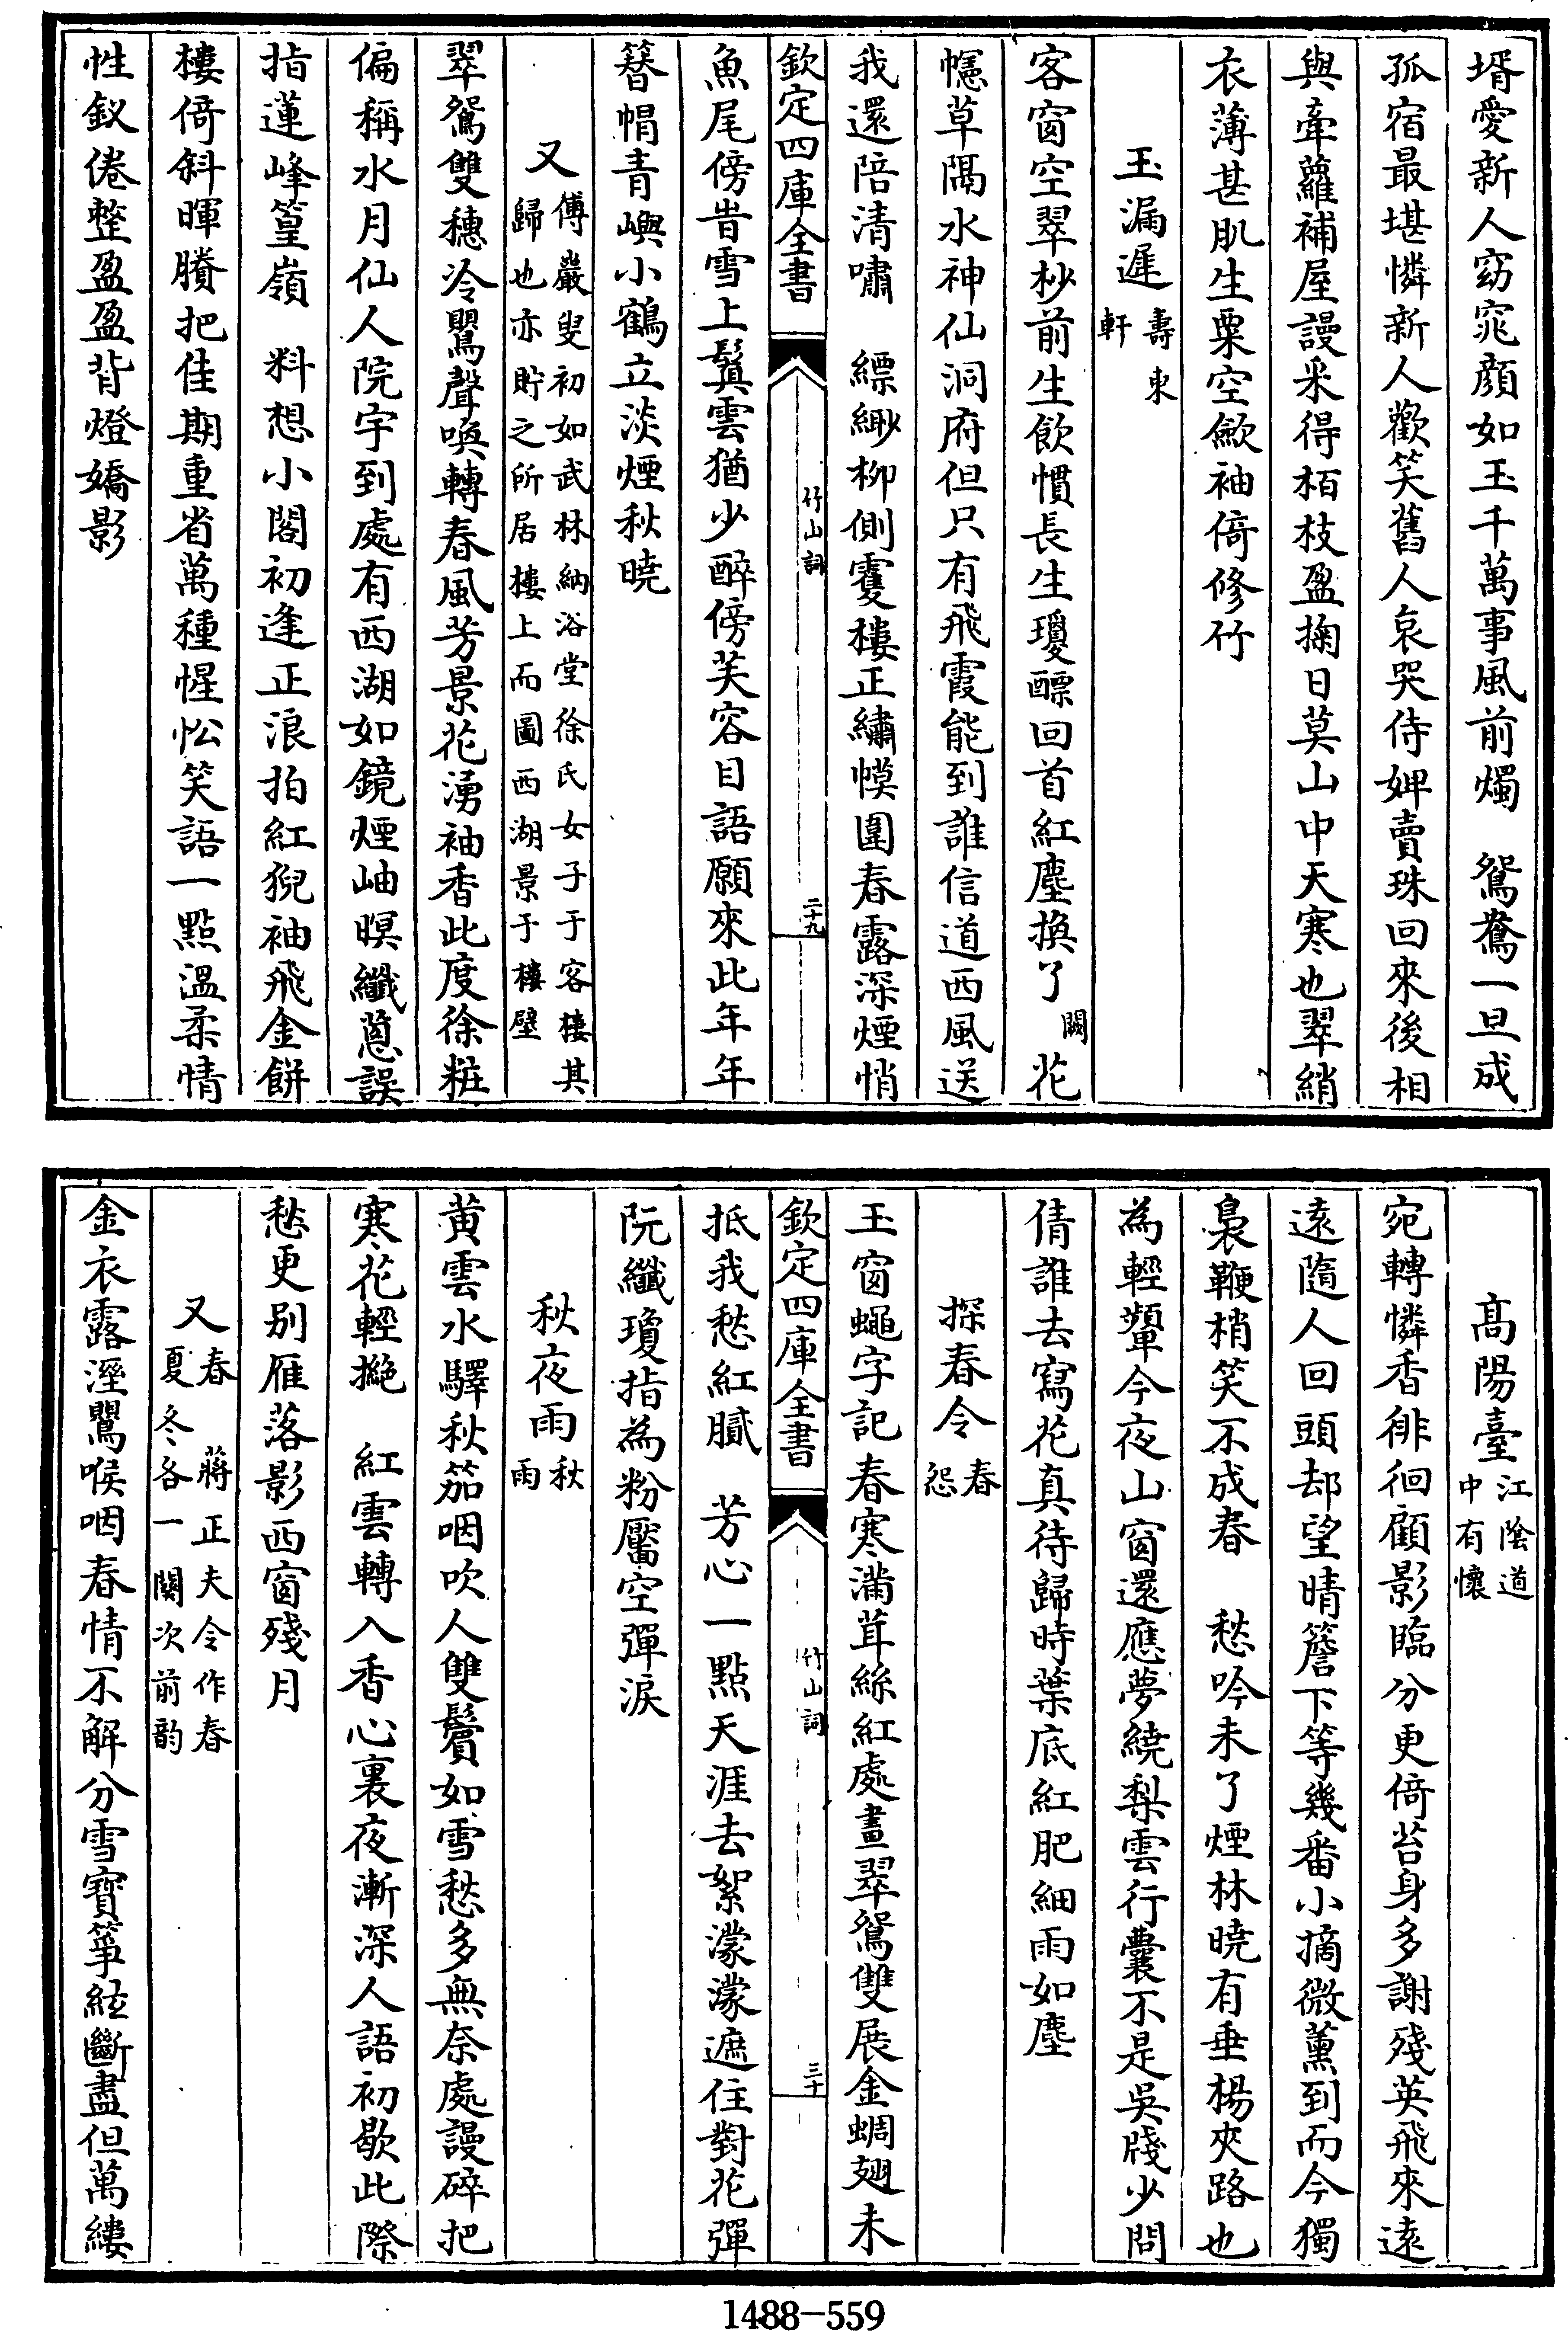 壻愛新人窈窕顔如玉千萬事風前燭　鴛鴦一旦成
孤宿最堪憐新人歡笑舊人哀哭侍婢賣珠回來後相
與牽蘿補屋謾采得栢枝盈掬日莫山中天寒也翠綃
衣薄甚肌生粟空歛袖倚修竹
玉漏遲 壽東軒
客窗空翠杪前生飲慣長生瓊醥回首紅塵換了 闕 花
幰草隔水神仙洞府但只有飛霞能到誰信道西風送
我還陪清嘯　縹緲柳側雙樓正繡幙圍春露深煙悄
欽定四庫全書
竹山詞
二十九
魚尾傍㫖雪上鬒雲猶少醉傍芙容目語願來此年年
簪帽青嶼小鶴立淡煙秋曉
又 傅巖叟初如武林納浴堂徐氏女子于客樓其
歸也亦貯之所居樓上而圖西湖景于樓壁
翠鴛雙穗冷鸎聲喚轉春風芳景花湧袖香此度徐粧
偏稱水月仙人院宇到處有西湖如鏡煙岫暝纖蔥誤
指蓮峰篁嶺　料想小閣初逢正浪拍紅猊袖飛金餅
樓倚斜暉賸把佳期重省萬種惺忪笑語一點溫柔情
性釵倦整盈盈背燈嬌影
高陽臺 江陰道中有懷
宛轉憐香徘徊顧影臨分更倚苔身多謝殘英飛來遠
遠隨人回頭却望晴簷下等幾番小摘微薰到而今獨
裊鞭梢笑不成春　愁吟未了煙林曉有垂楊夾路也
為輕顰今夜山窗還應夢繞梨雲行囊不是吳牋少問
倩誰去寫花真待歸時葉底紅肥細雨如塵
探春令 春怨
玉窗蠅字記春寒滿茸絲紅處畫翠鴛雙展金蜩翅未
欽定四庫全書
竹山詞
三十
抵我愁紅膩　芳心一點天涯去絮濛濛遮住對花彈
阮纖瓊指為粉靨空彈淚
秋夜雨 秋雨
黄雲水驛秋笳咽吹人雙鬢如雪愁多無奈處謾碎把
寒花輕撧　紅雲轉入香心裏夜漸深人語初歇此際
愁更别雁落影西窗殘月
又 春　蔣正夫令作春
夏冬各一闋次前韵
金衣露溼鸎喉咽春情不解分雪寳箏絃斷盡但萬縷
1488-559